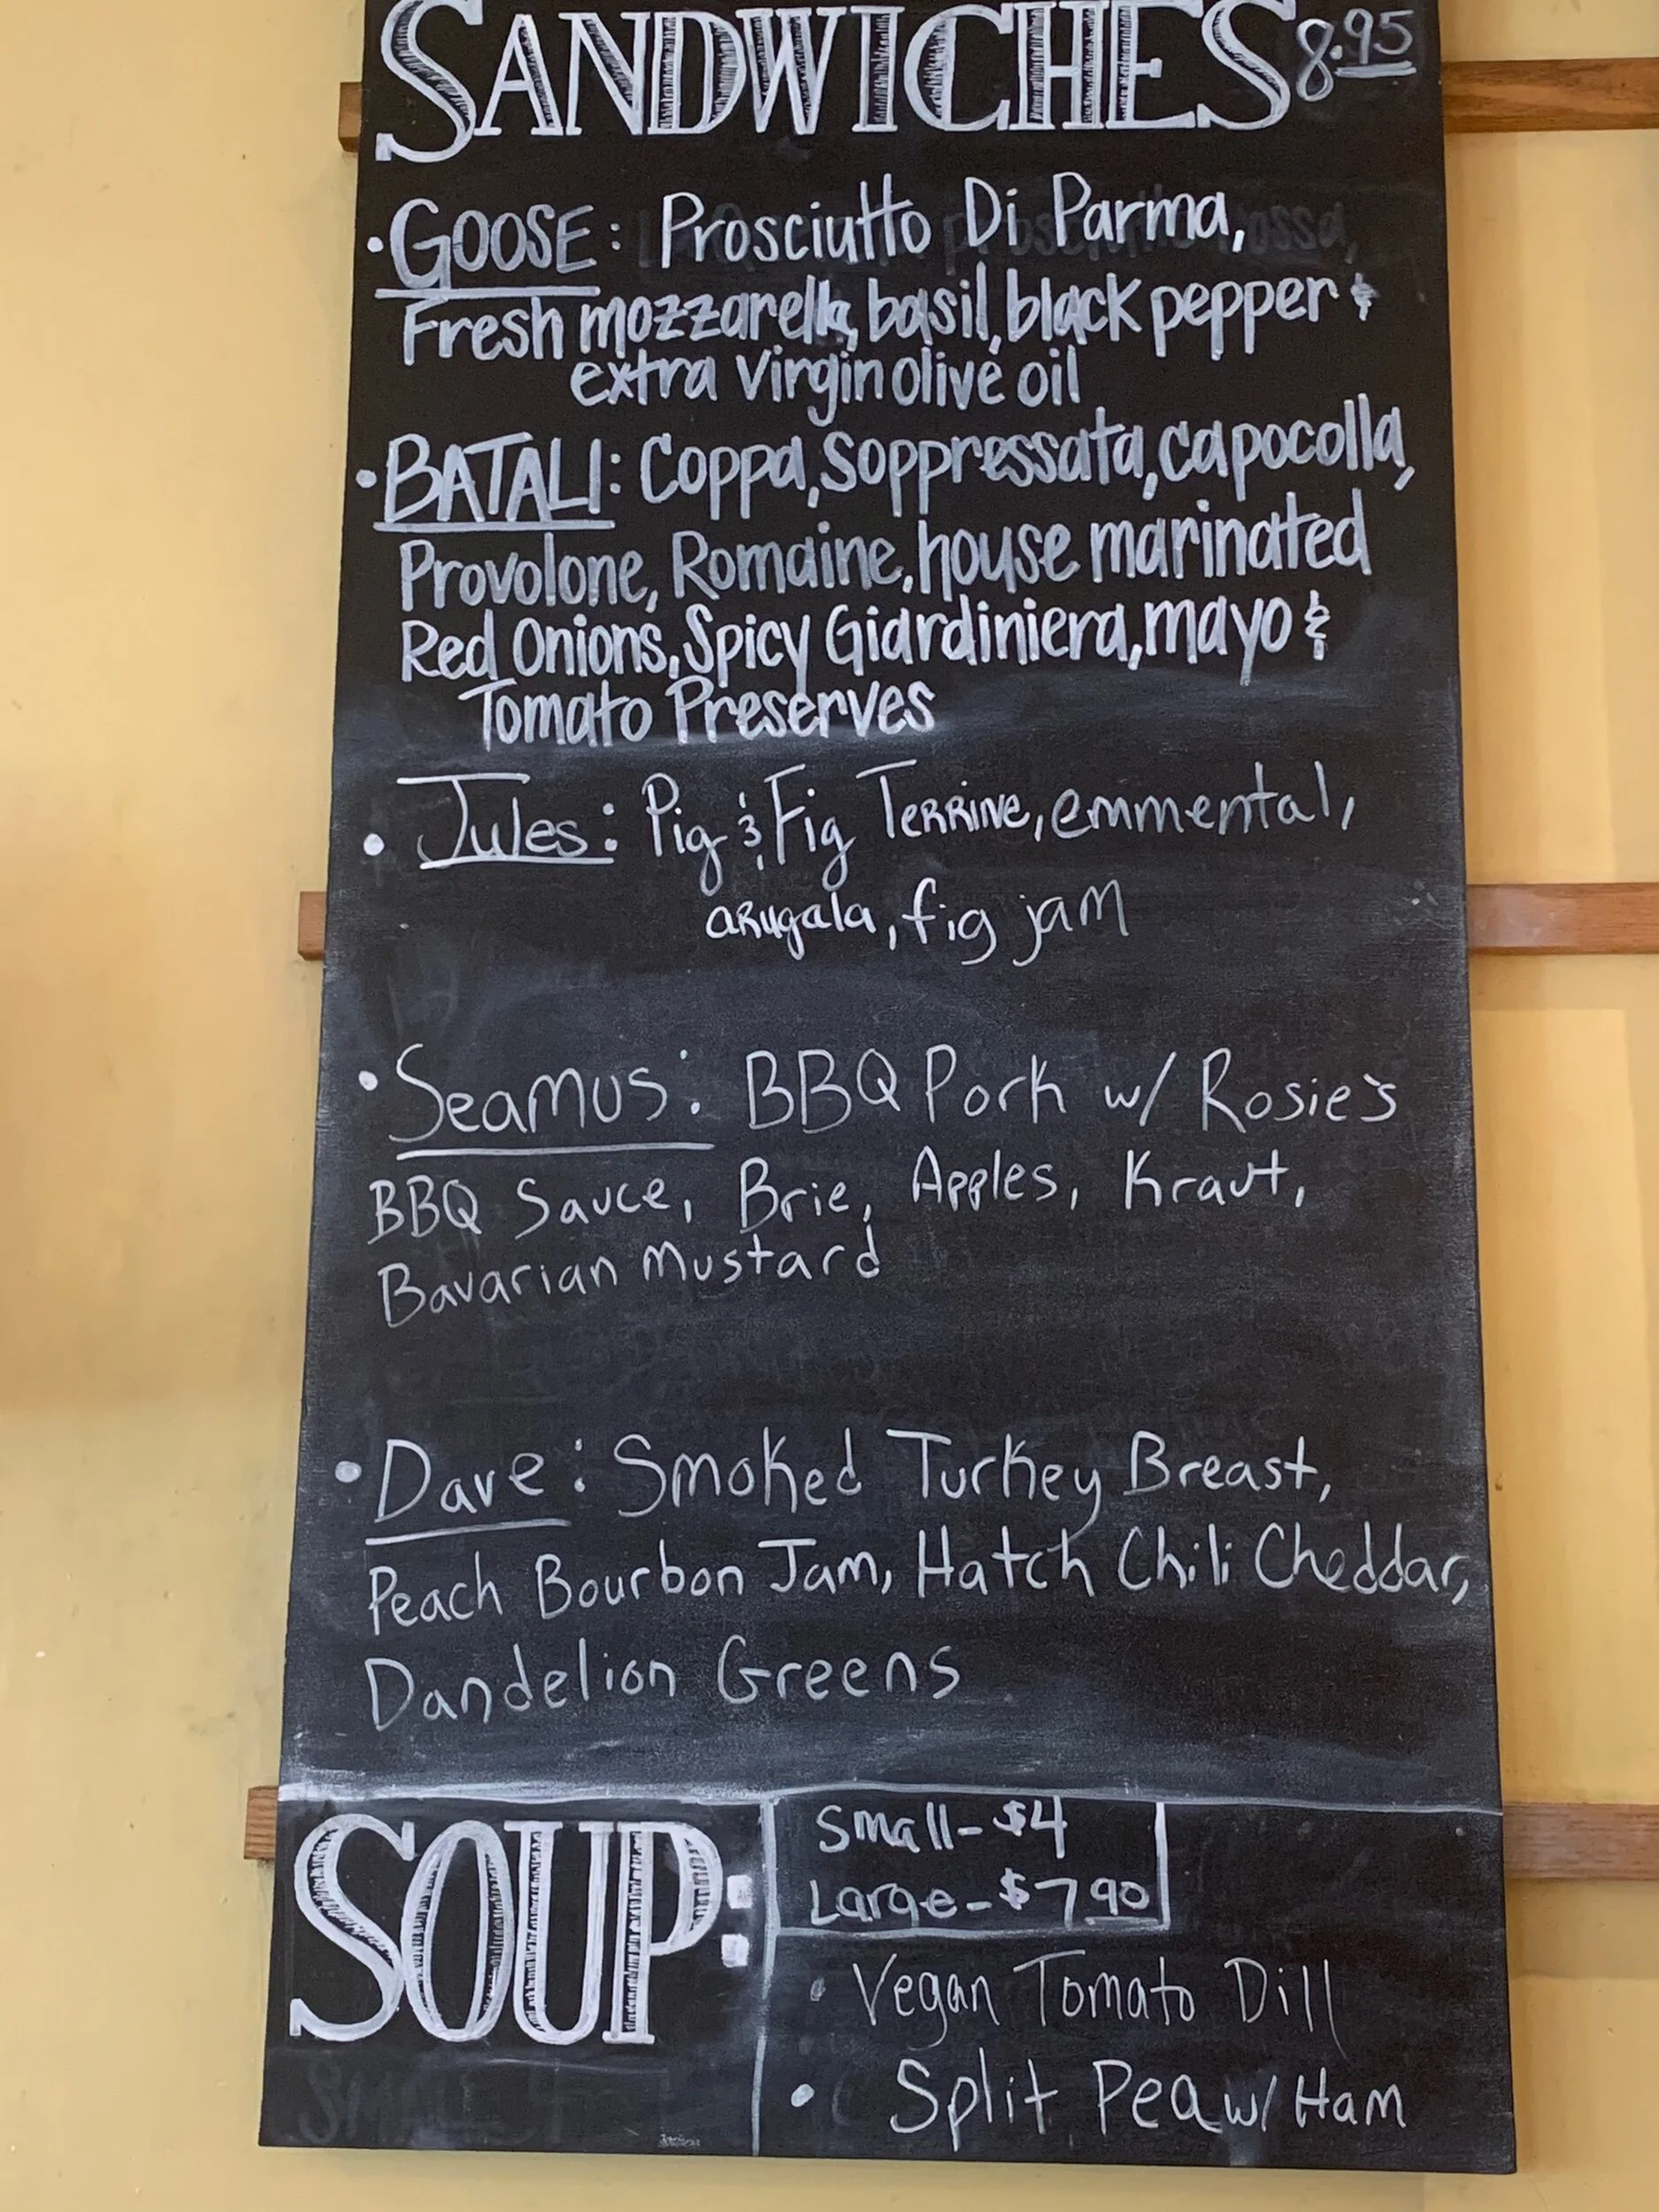 SANDWICHES 8.95
• GOOSE: Prosciutto Di Parma,
Fresh mozzarella, basil, black pepper &
extra virgin olive oil
• BATALI: Coppa, Soppressata, capocolla,
Provolone, Romaine, house marinated
Red Onions, Spicy Giardiniera, mayo &
Tomato Preserves
• Jules: Pig & Fig Terrine, emmental,
arugala, fig jam
• Seamus: BBQ Pork w/ Rosie's
BBQ Sauce, Brie, Apples, Kraut,
Bavarian Mustard
• Dave: Smoked Turkey Breast,
Peach Bourbon Jam, Hatch Chili Cheddar,
Dandelion Greens
SOUP:
Small - $4
Large - $7 90
• Vegan Tomato Dill
• Split Pea w/ Ham